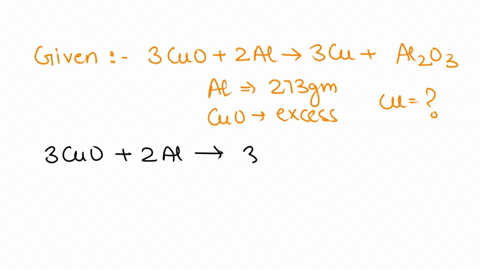 Given :- 3CuO + 2Al → 3Cu + Al2O3
Al ⇒ 273gm
CuO → excess
Cu = ?
3CuO + 2Al → 3